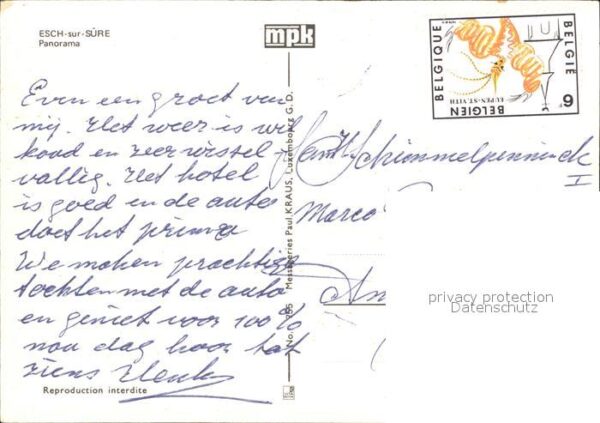 ESCH-sur-SÛRE
Panorama
mpk
BELGIQUE
BELGIË
BELGIEN
EUPEN-ST.VITH
9
Even een groet van
mij. Het weer is wel
koud en zeer wissel
vallig. Het hotel
is goed en de auto
doet het prima
We maken prachtige
tochten met de auto
en geniet voor 100%
nou dag hoor tot
ziens Henk
Reproduction interdite
No. 255 Messageries Paul KRAUS, Luxembourg G. D.
Schimmelpenninck
I
Marco
Am
privacy protection
Datenschutz